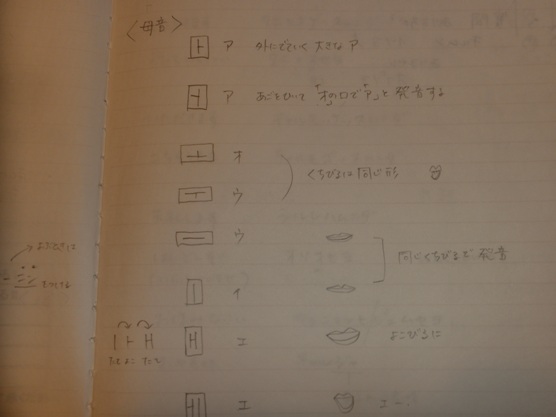 〈母音〉
ㅏ ア 外にでていく 大きなア
ㅓ ア あごをひいて「オ」の口で「ア」と発音する
ㅗ オ
くちびるは同じ形
ㅜ ウ
ㅡ ウ
同じくちびるで発音
ㅣ イ
ㅐ エ よこびろに
ㅣ ㅏ ㅐ
たて よこ たて
エ